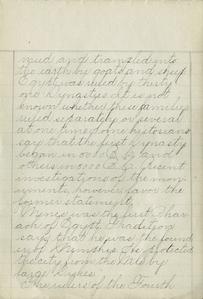 mixed and trampled into
the earth by goats and sheep
Egypt was ruled by thirty
one Dynasties. It is not
known whether these families
ruled separately or several
at one time. Some historians
say that the first Dynasty
began in 5000 B. C. and
others in 3000 B. C. Recent
investigations of the mon-
uments, however, favor the
former statement.
Menes was the first Phar-
aoh of Egypt. Tradition
says that he was the found-
er of Memphis. He protected
the city from the Nile by
large dykes.
The rulers of the Fourth